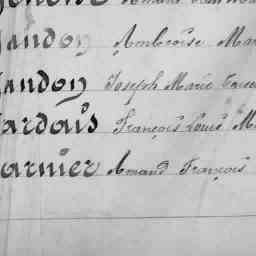 andon Ambroise Mar
andon Joseph Marie
ardais François Louis M
arnier Amand François